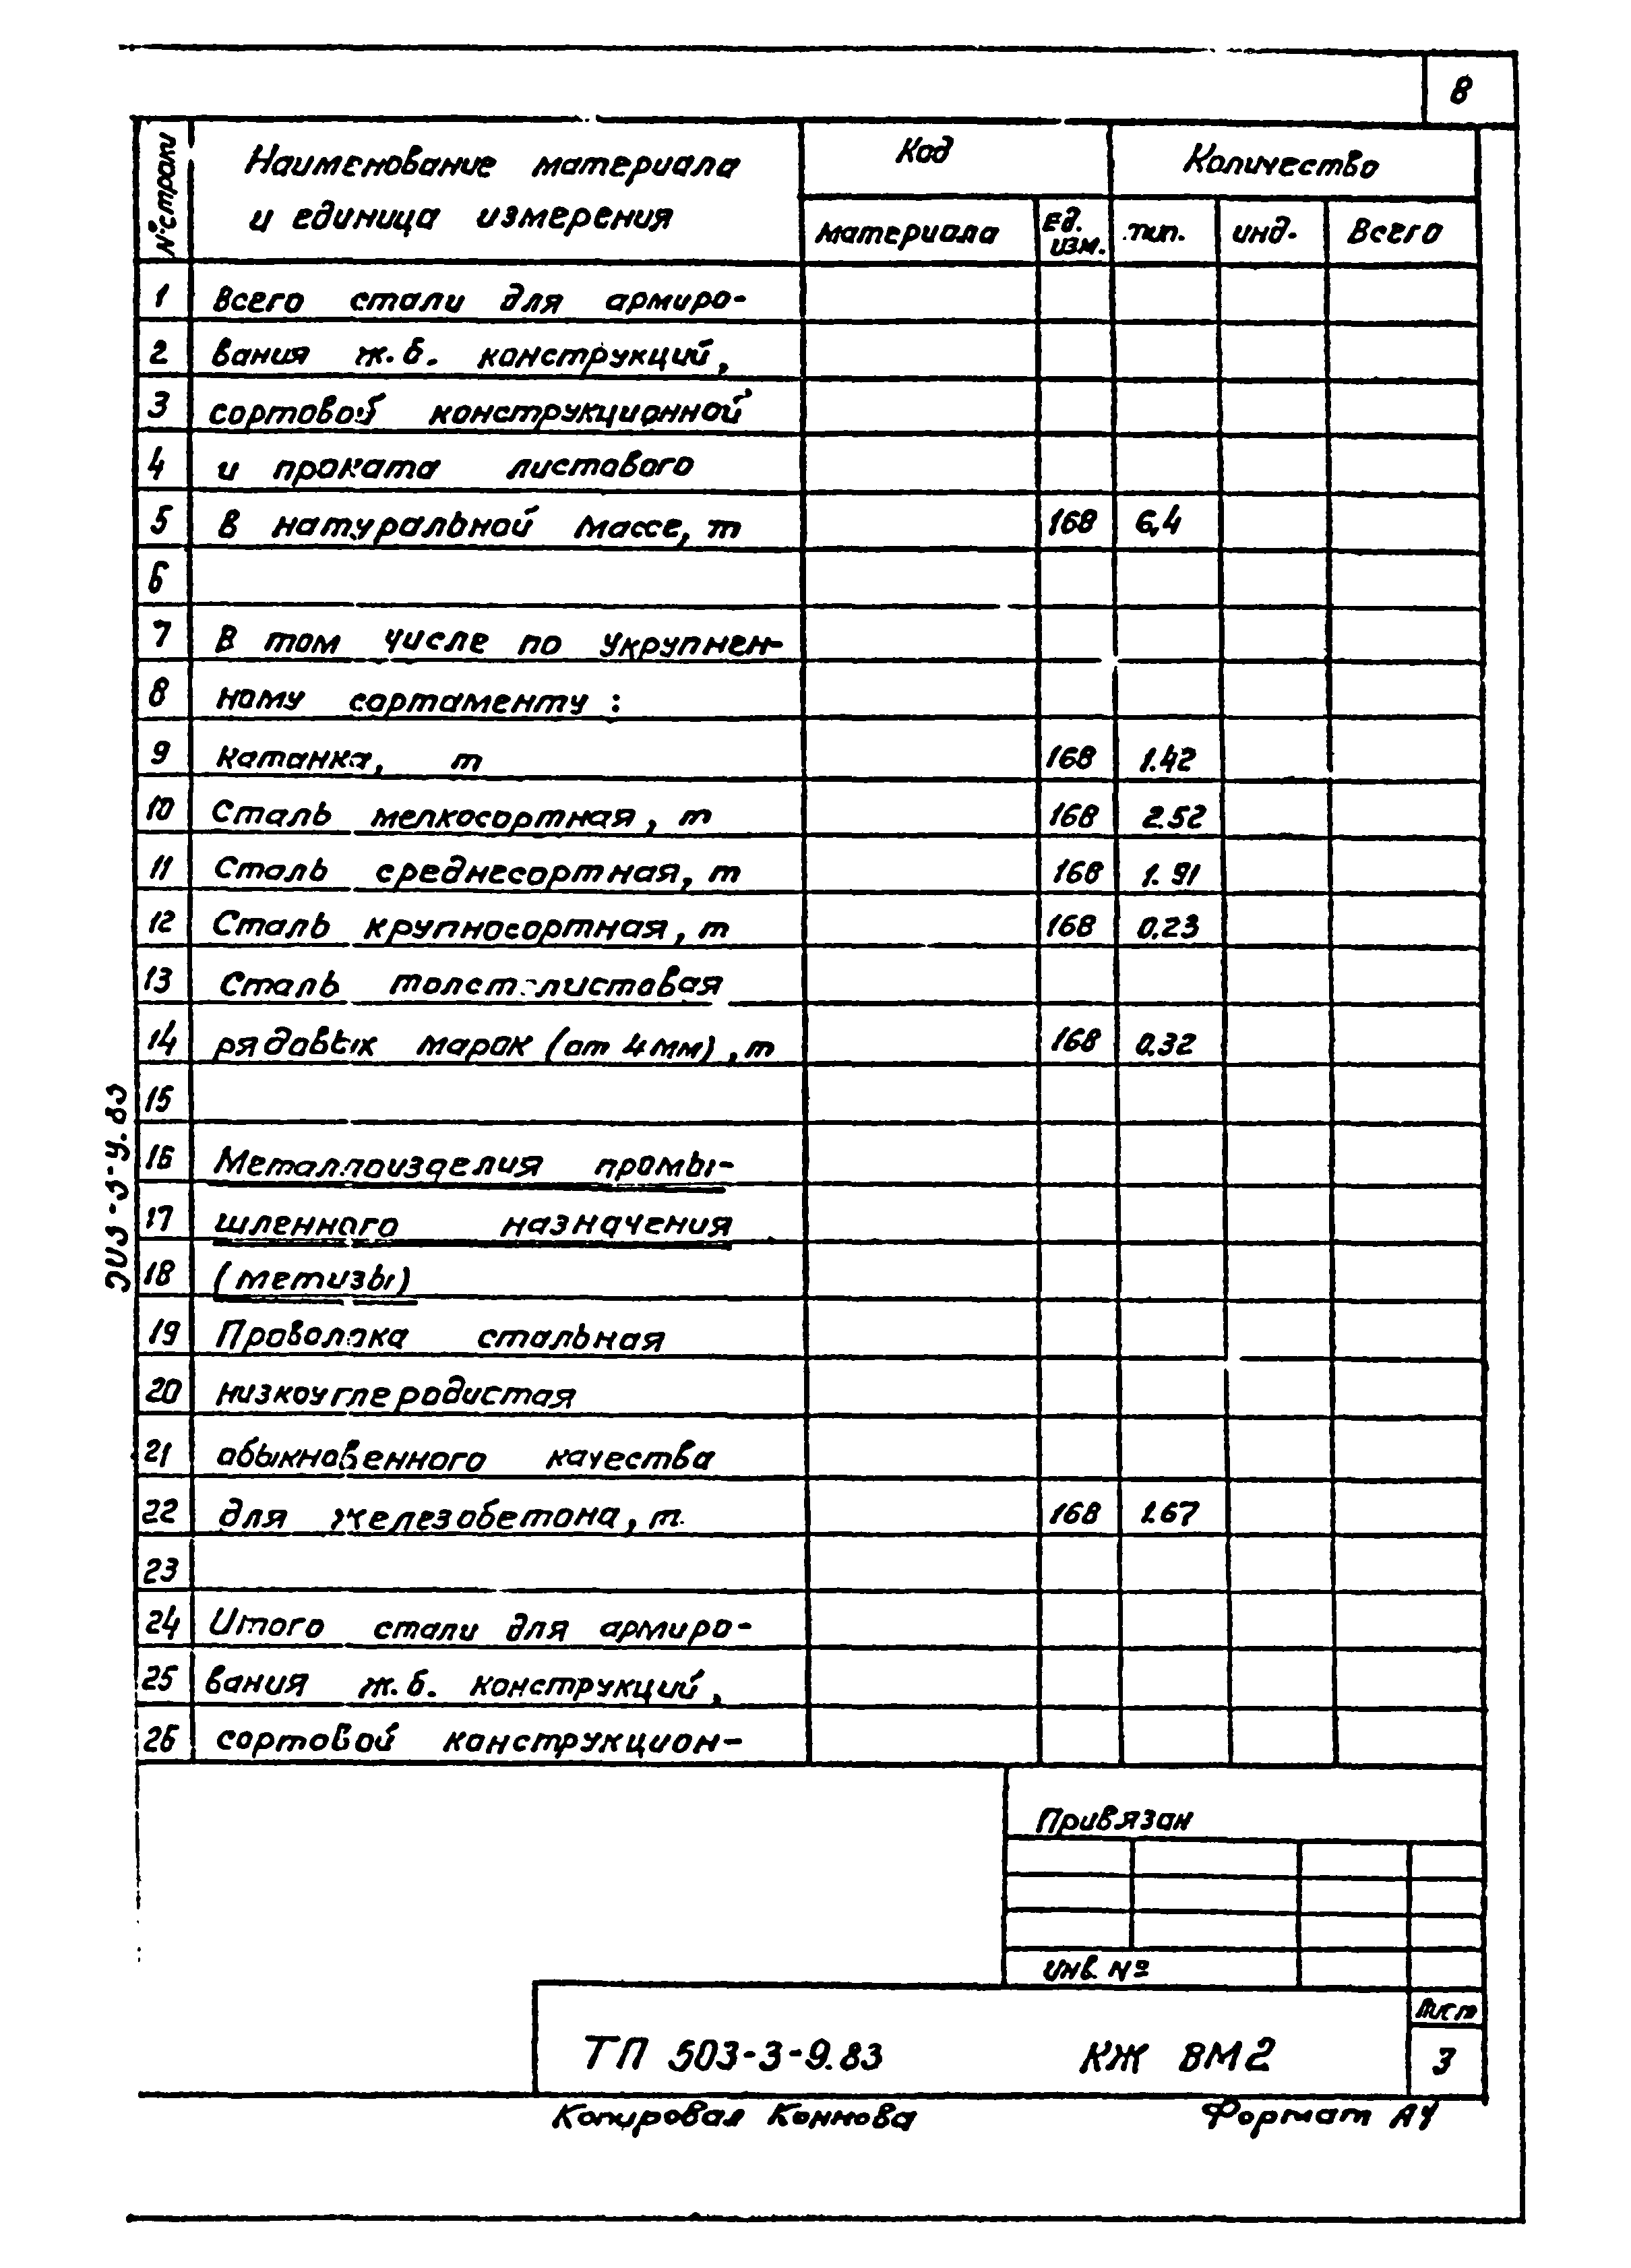 8
№ строки
Наименование материала
и единица измерения
Код
Количество
материала
Ед.
изм.
тип.
инд.
Всего
1 Всего стали для армиро-
2 вания ж.б. конструкций,
3 сортовой конструкционной
4 и проката листового
5 в натуральной массе, т 168 6,4
6
7 В том числе по укрупнен-
8 ному сортаменту:
9 катанка, т 168 1.42
10 Сталь мелкосортная, т 168 2.52
11 Сталь среднесортная, т 168 1.91
12 Сталь крупносортная, т 168 0.23
13 Сталь толстолистовая
14 рядовых марок (от 4мм), т 168 0.32
15
16 Металлоизделия промы-
17 шленного назначения
18 (метизы)
19 Проволока стальная
20 низкоуглеродистая
21 обыкновенного качества
22 для железобетона, т. 168 1.67
23
24 Итого стали для армиро-
25 вания ж.б. конструкций,
26 сортовой конструкцион-
Привязан
инв. №
ТП 503-3-9.83 КЖ ВМ2
Лист
3
Копировал Коннова
Формат А4